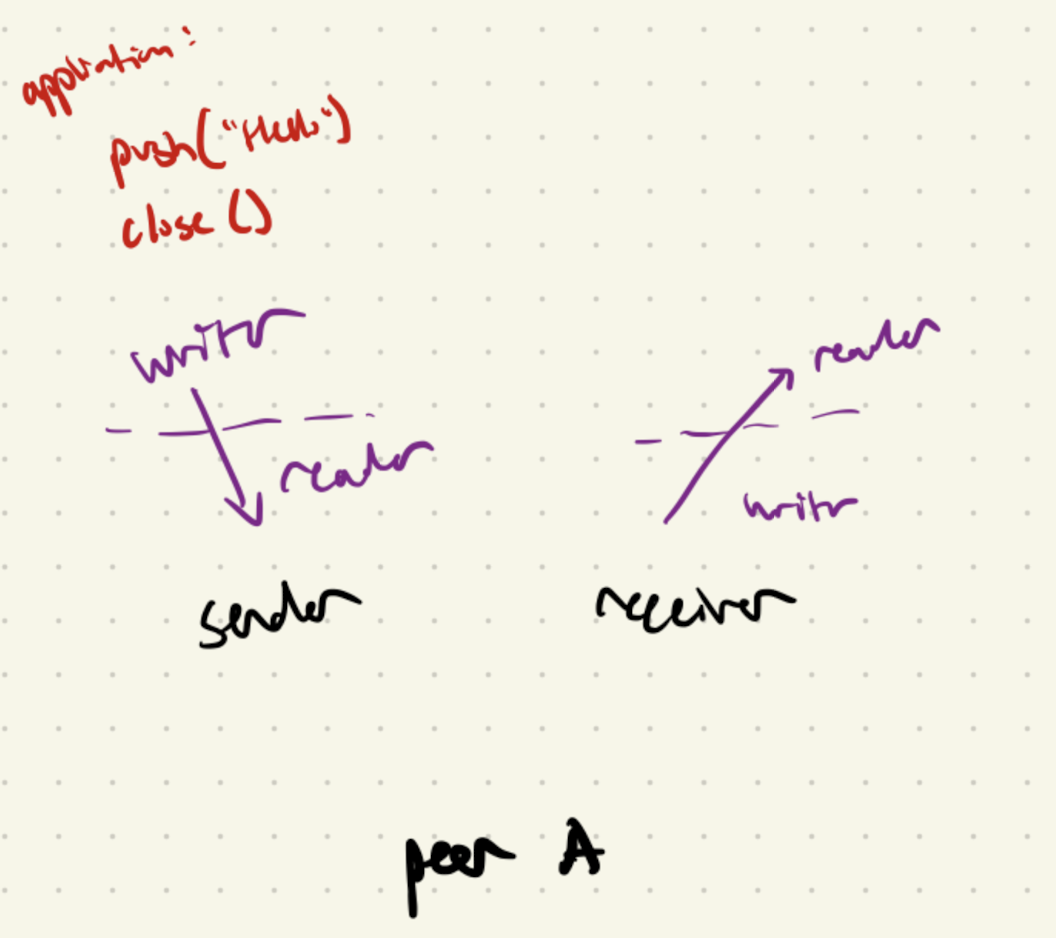 application:
push("Hello")
close()
writer
reader
reader
writer
sender
receiver
peer A